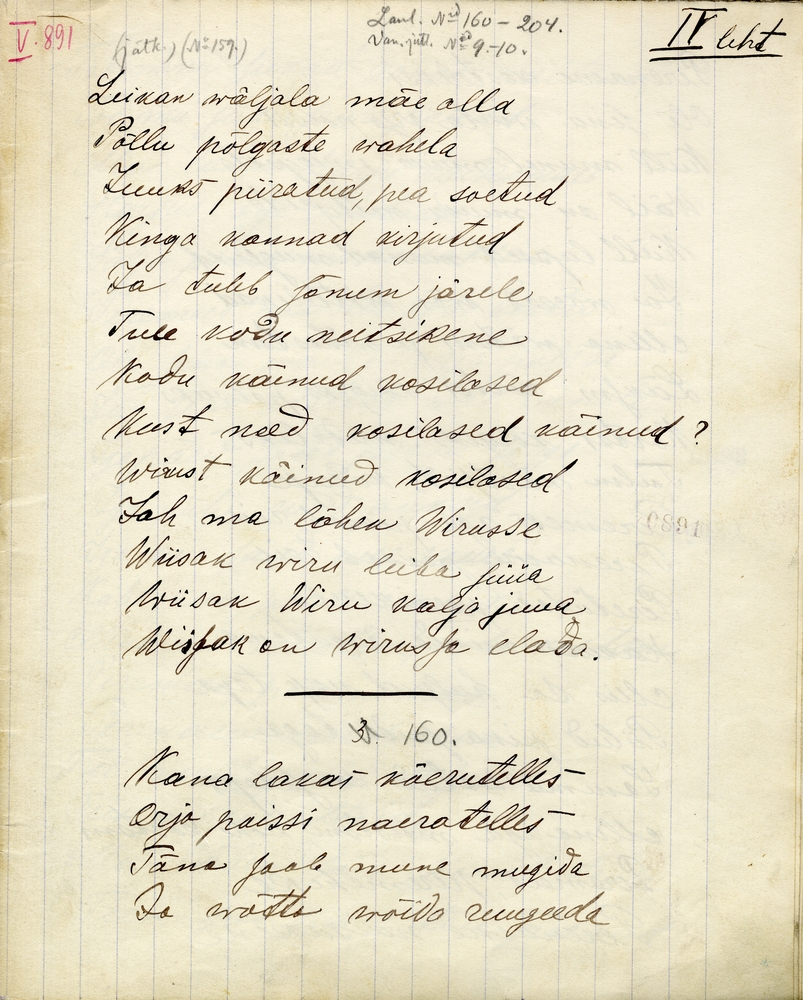 V. 891
(jätk.) (№ 159.)
Laul. №rd 160 – 204.
Van. jutt. №rd 9.-10.
IV leht
Leikan wäljala mäe alla
Põllu põlgaste wahela
Juuks piiratud, pea soetud
Kinga kannad kirjutud
Ja tuleb sõnum järele
Tule kodu neitsikene
Kodu käinud kosilased
Kust nad kosilased käinud?
Wirust käinud kosilased
Jah ma lähen Wirusse
Wiisak wiru leiba süüa
Wiisak Wiru kalja juua
Wiisak on wirussa elada.
3. 160.
Kana lakas käerutelles
Orja poissi naeratelles
Täna saab mune mugida
Ja wõtta wõida ruugeeda